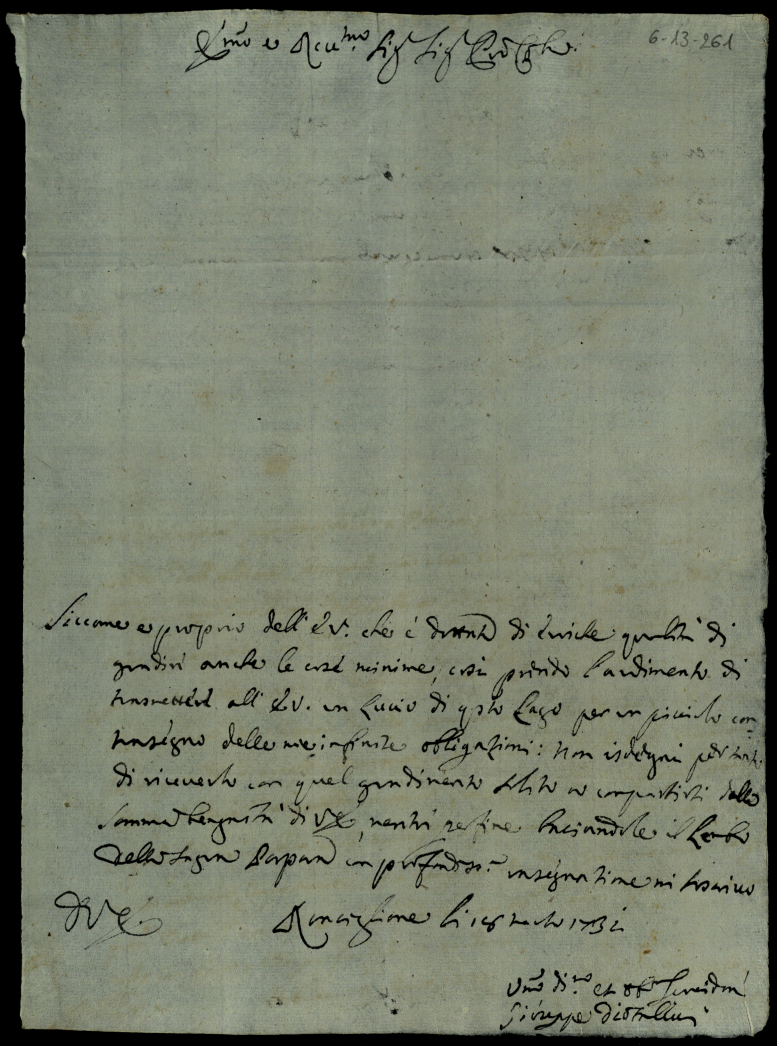 6-13-261
E.mo e R.mo Sig.r Sig.r P.ron Col.mo
Siccome è proprio dell'E.V. che è dottata di eroiche qualità di
gradire anche le cose minime, così prendo l'ardimento di
trasmettere all'E.V. un Lucio di q.sto Lago per un picciolo con
trasegno delle mie infinite obligazioni: Non isdegni per tanto
di riceverlo con quel gradimento solito a compartirsi dalla
somma benignità di V.E., mentre per fine baciandole il Lembo
della Sagra Porpora con profondiss.a rassegnazione mi sosrivo
D.V.E. Ronciglione li marzo 173
Um.o di.mo et obb.o Servidore
Giuseppe